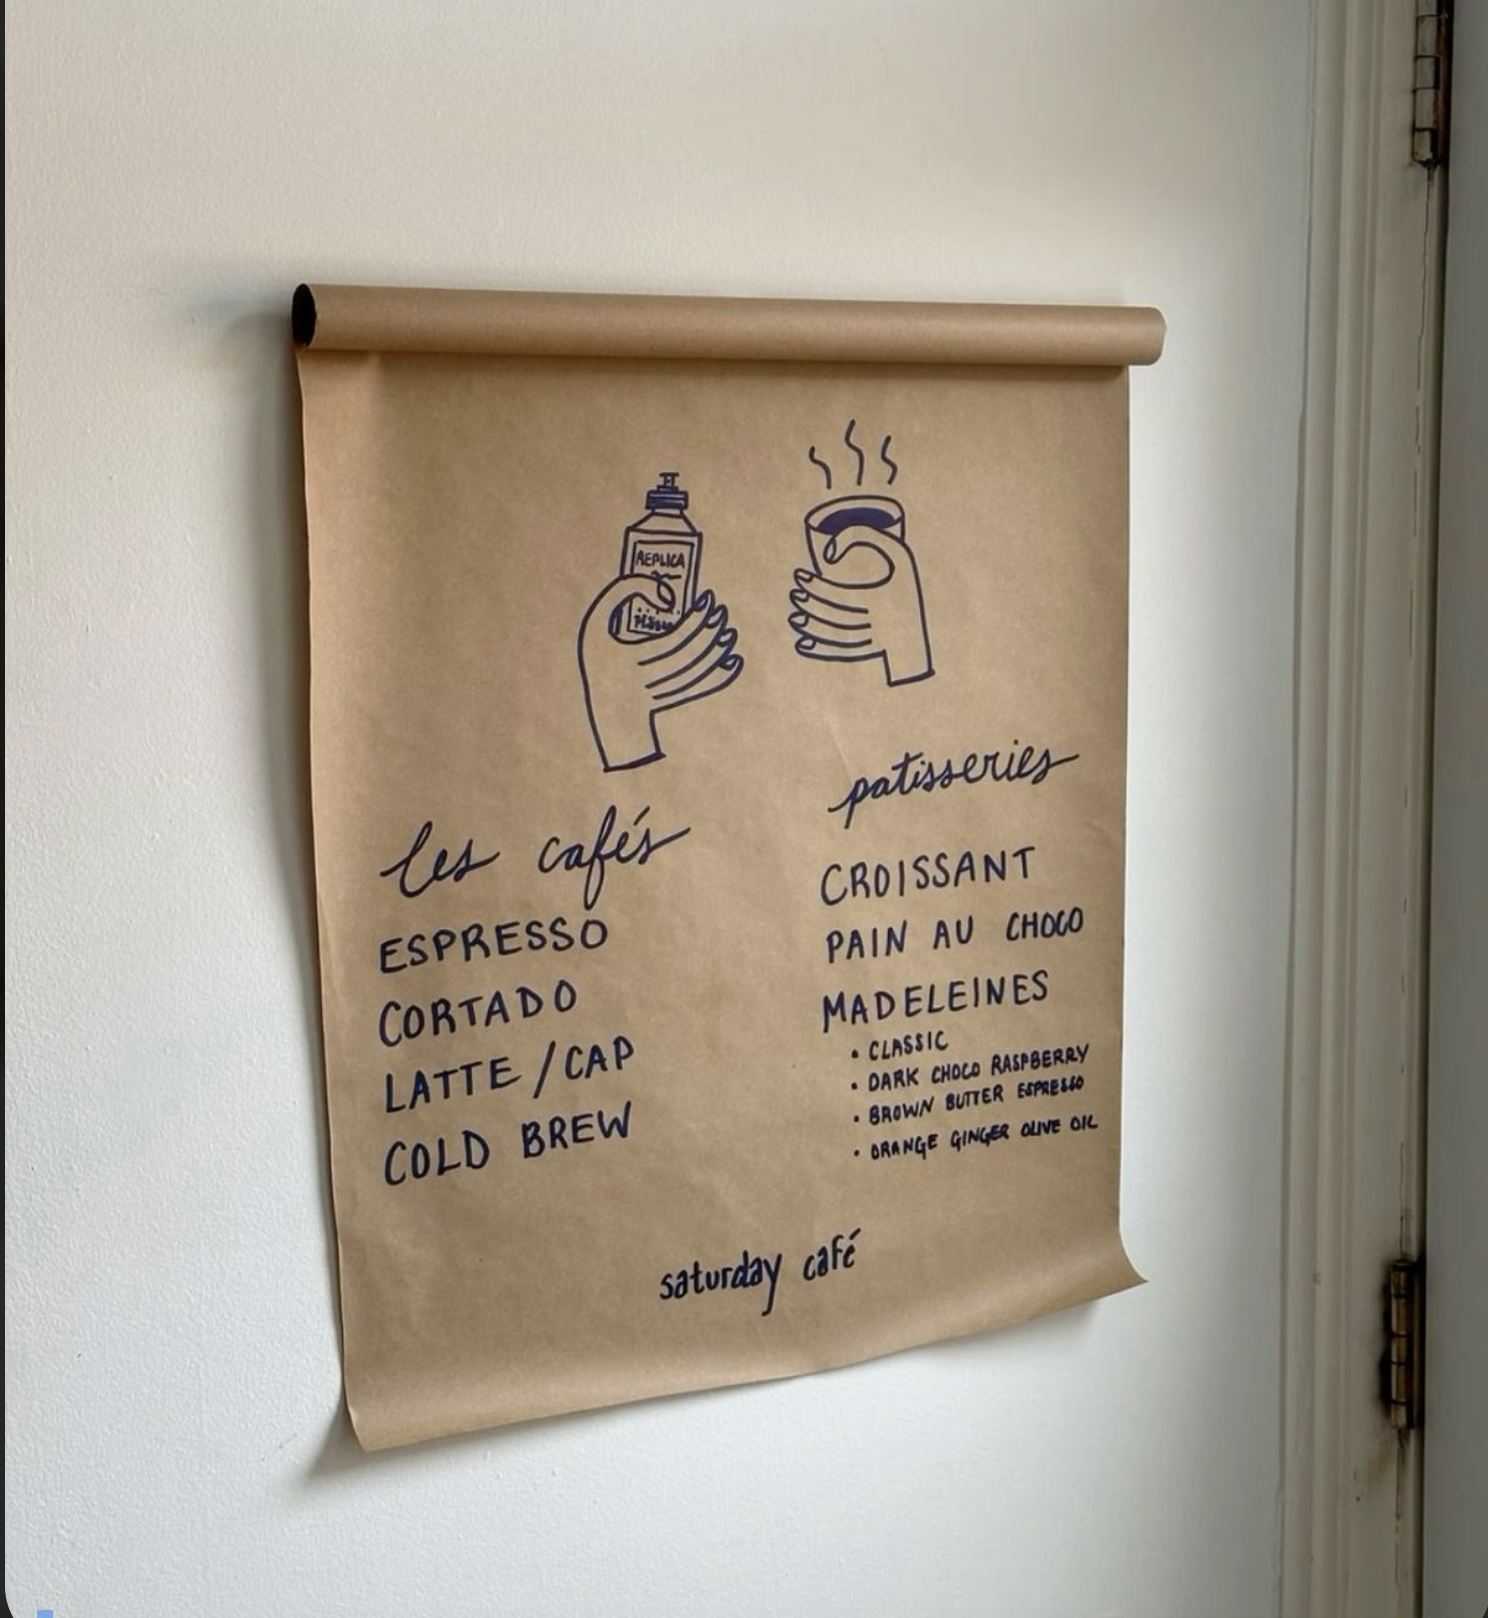 REPLICA
les cafés
ESPRESSO
CORTADO
LATTE / CAP
COLD BREW
patisseries
CROISSANT
PAIN AU CHOCO
MADELEINES
• CLASSIC
• DARK CHOCO RASPBERRY
• BROWN BUTTER ESPRESSO
• ORANGE GINGER OLIVE OIL
saturday café